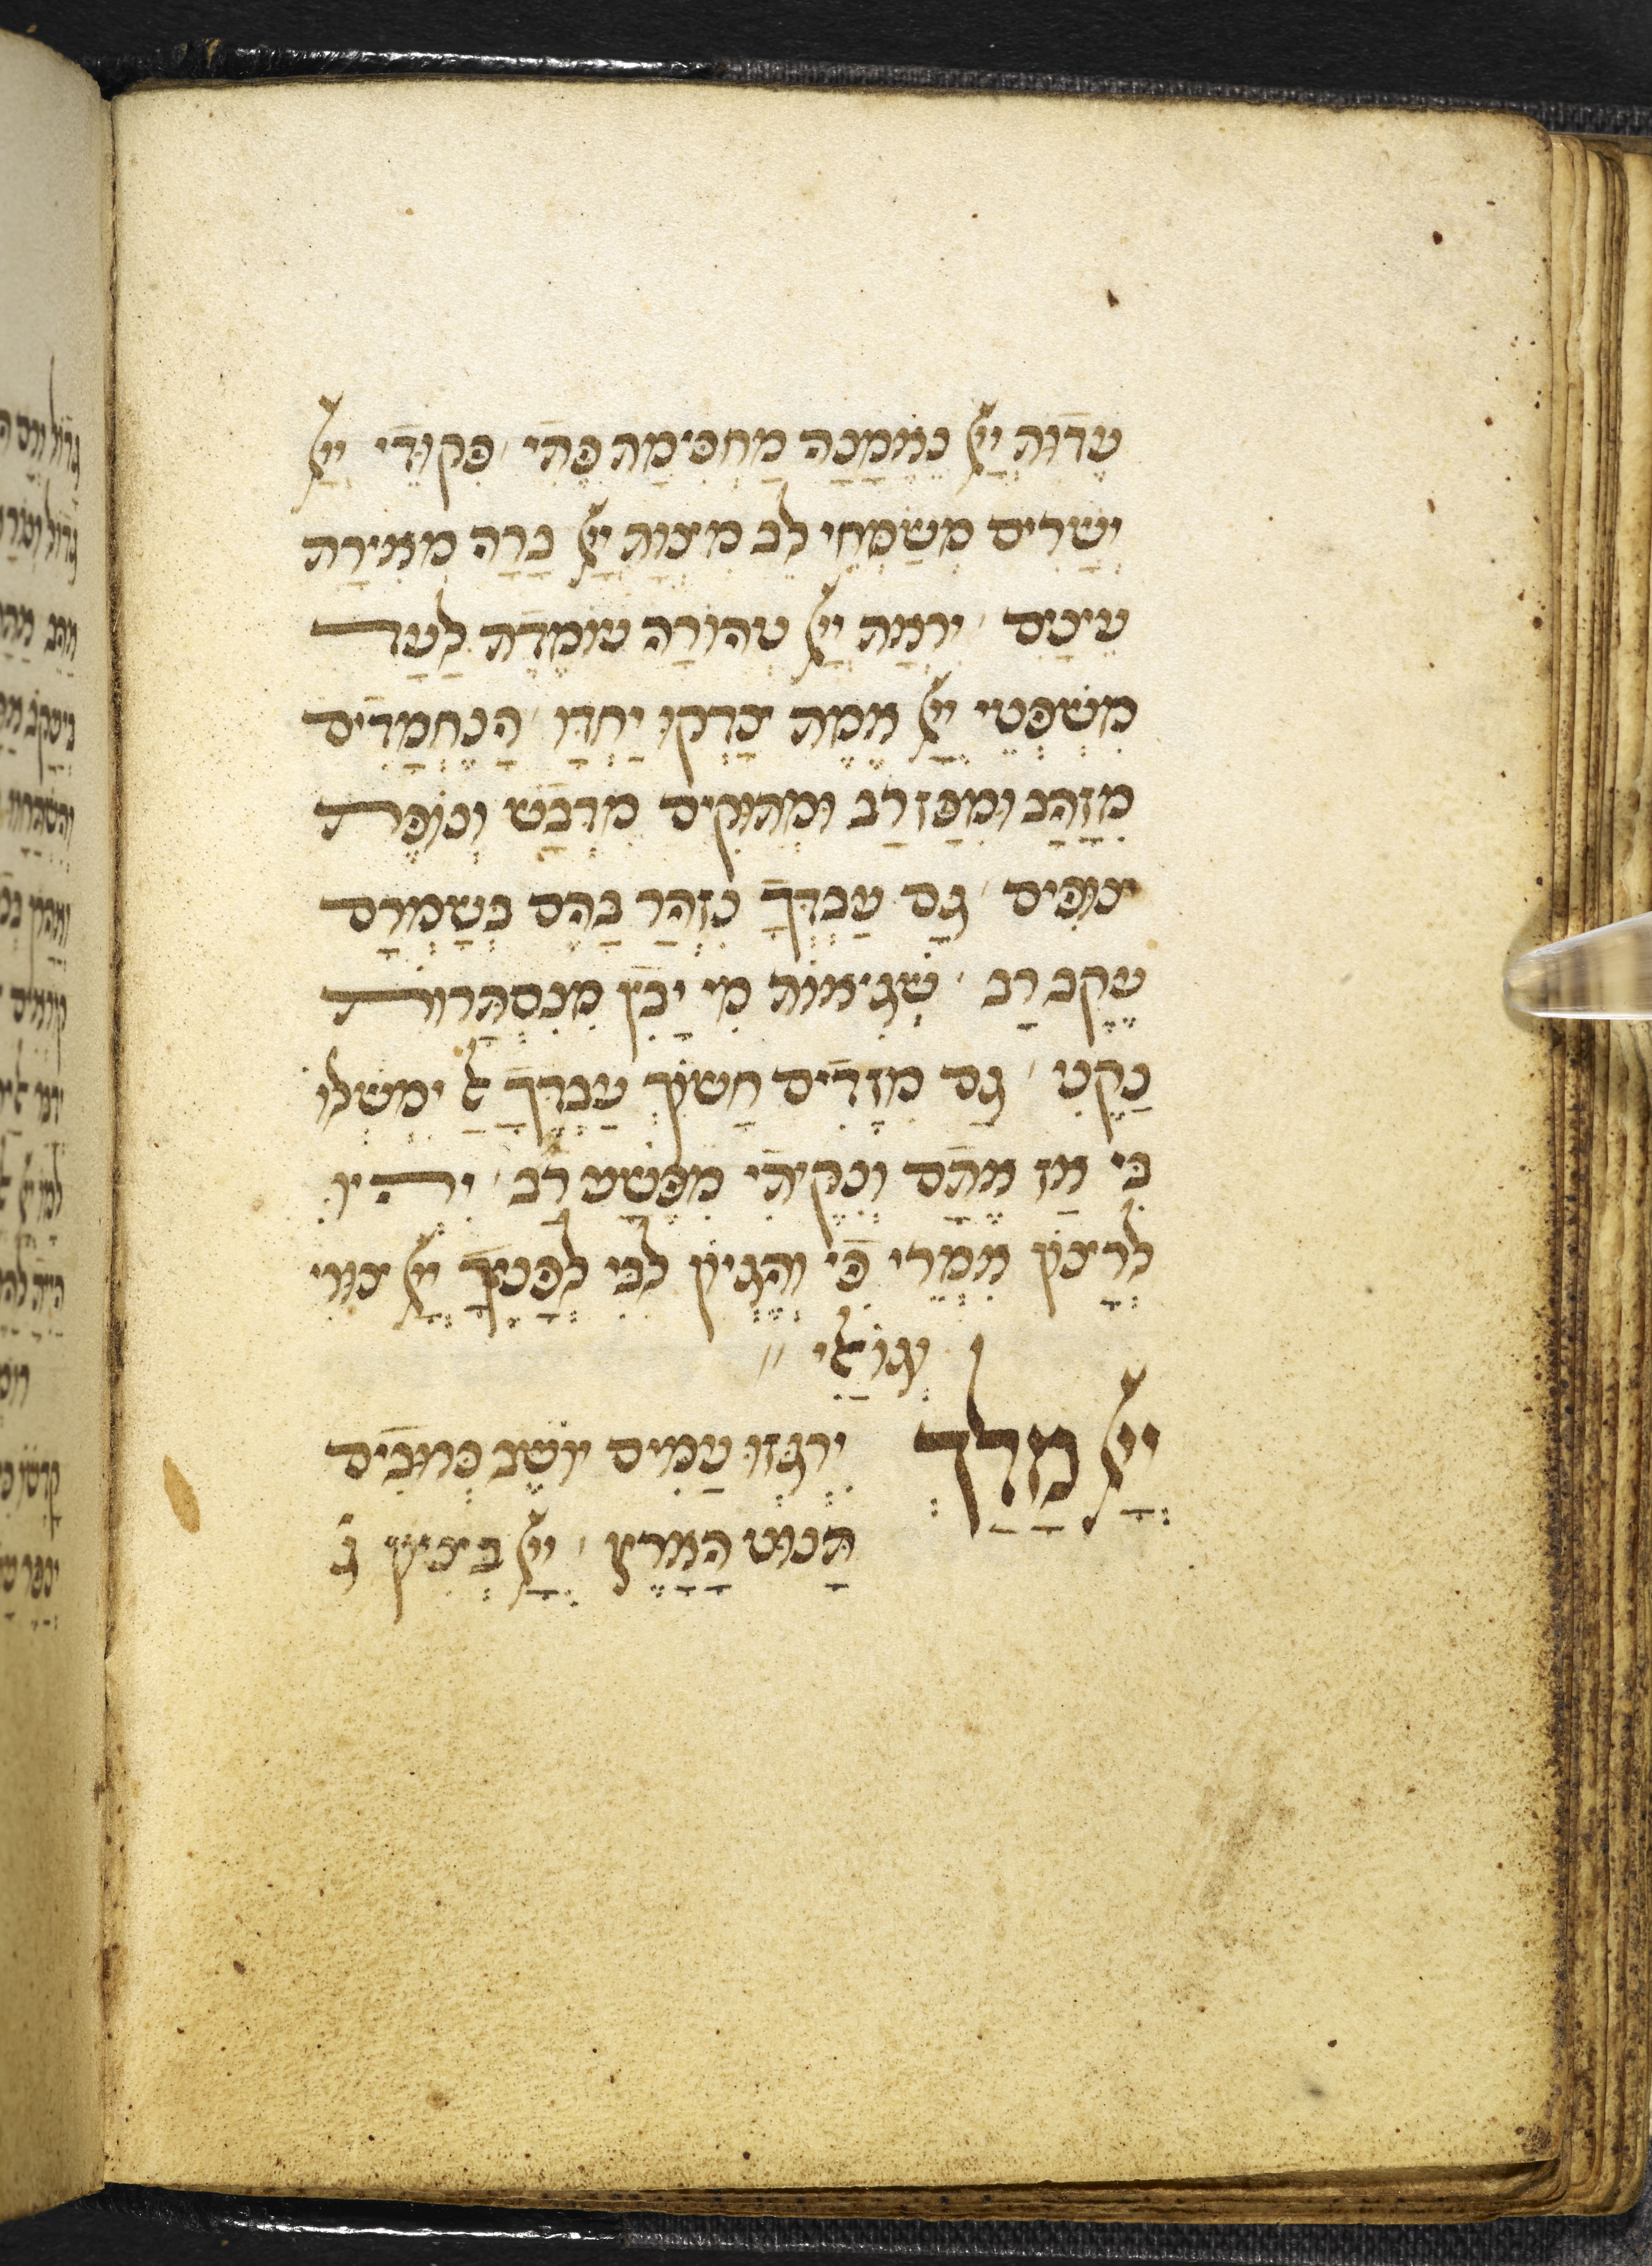 עֵדוּת יְיָ נֶאֱמָנָה מַחְכִּימַת פֶּתִי׳ פִּקוּדֵי יְיָ
יְשָׁרִים מְשַׂמְּחֵי לֵב מִצְוַת יְיָ בָּרָה מְאִירַת
עֵינָיִם׳ יִרְאַת יְיָ טְהוֹרָה עוֹמֶדֶת לָעַד
מִשְׁפְּטֵי יְיָ אֱמֶת צָדְקוּ יַחְדָּו׳ הַנֶּחֱמָדִים
מִזָּהָב וּמִפַּז רַב וּמְתוּקִים מִדְּבַשׁ וְנוֹפֶת
צוּפִים׳ גַּם עַבְדְּךָ נִזְהַר בָּהֶם בְּשָׁמְרָם
עֵקֶב רָב׳ שְׁגִיאוֹת מִי יָבִין מִנִּסְתָּרוֹת
נַקֵּנִי׳ גַּם מִזֵּדִים חֲשׂוֹךְ עַבְדֶּךָ אַל יִמְשְׁלוּ
בִי אָז אֵתָם וְנִקֵּיתִי מִפֶּשַׁע רָב׳ יִהְיוּ
לְרָצוֹן אִמְרֵי פִי וְהֶגְיוֹן לִבִּי לְפָנֶיךָ יְיָ צוּרִי
וְגוֹאֲלִי׳׳
יְיָ מָלָךְ יִרְגְּזוּ עַמִּים יוֹשֵׁב כְּרוּבִים
תָּנוּט הָאָרֶץ׳ יְיָ בְּצִיּוֹן גָּ